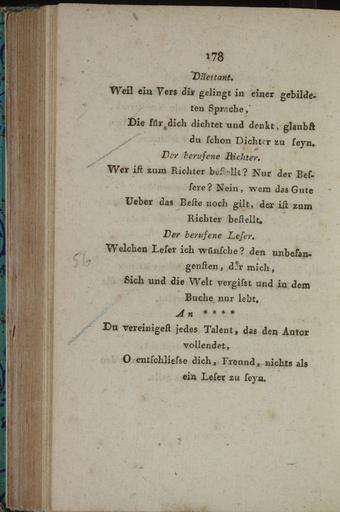 178
Dilettant.
Weil ein Vers dir gelingt in einer gebilde-
ten Sprache,
Die für dich dichtet und denkt, glaubſt
du ſchon Dichter zu ſeyn.
Der berufene Richter.
Wer iſt zum Richter beſtellt? Nur der Beſ-
ſere? Nein, wem das Gute
Ueber das Beſte noch gilt, der iſt zum
Richter beſtellt.
Der berufene Leſer.
Welchen Leſer ich wünſche? den unbefan-
56
genſten, der mich,
Sich und die Welt vergiſst und in dem
Buche nur lebt.
An * * * *
Du vereinigeſt jedes Talent, das den Autor
vollendet,
O entſchlieſse dich, Freund, nichts als
ein Leſer zu ſeyn.